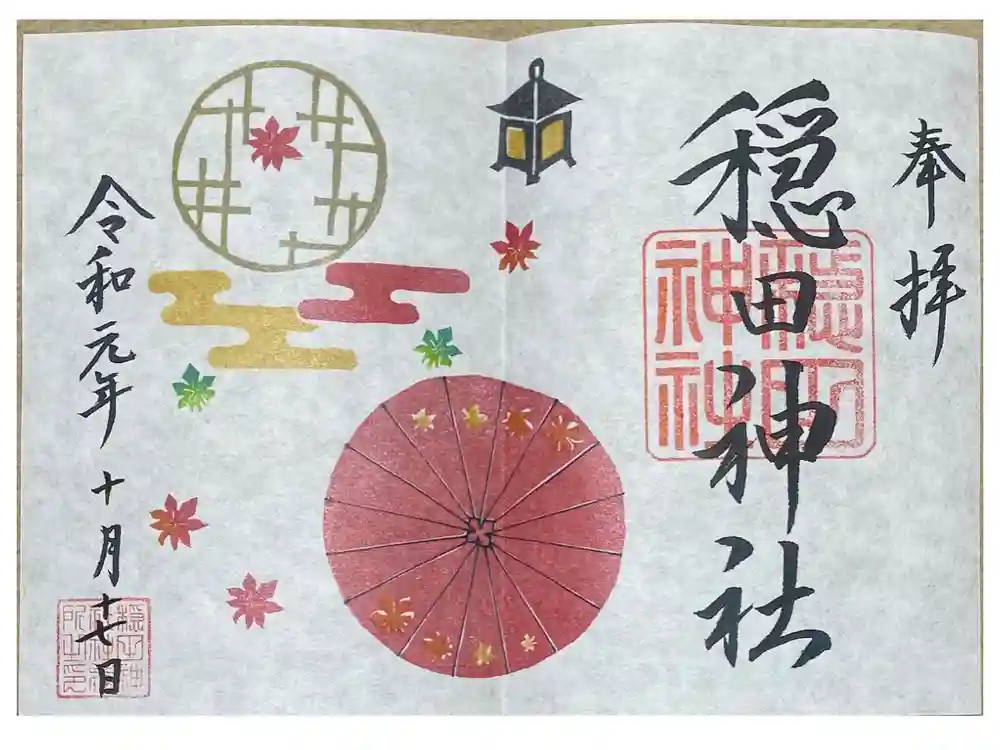 奉拝
穏田神社
穏田神社
令和元年 十月十七日